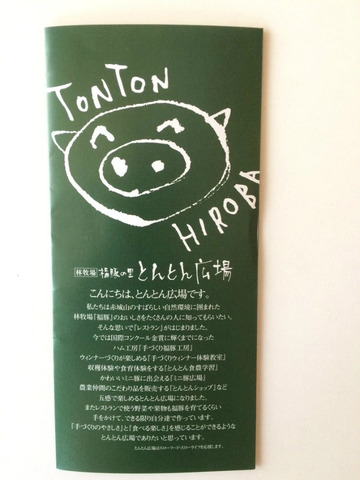 TONTON
HIROBA
林牧場 福豚の里 とんとん広場
こんにちは、とんとん広場です。
私たちは赤城山のすばらしい自然環境に囲まれた
林牧場「福豚」のおいしさをたくさんの人に知ってもらいたい。
そんな思いで「レストラン」がはじまりました。
今では国際コンクール金賞に輝くまでになった
ハム工房「手づくり福豚工房」
ウィンナーづくりが楽しめる「手づくりウィンナー体験教室」
収穫体験や食育体験をする「とんとん食農学習」
かわいいミニ豚に出会える「ミニ豚広場」
農業仲間のこだわり品を販売する「とんとんショップ」など
五感で楽しめるとんとん広場になりました。
またレストランで使う野菜や果物も福豚を育てるくらい
手をかけて、できる限り自分達で作っています。
「手づくりのやさしさ」と「食べる楽しさ」を感じることができるような
とんとん広場でありたいと思っています。
とんとん広場はスローフード・スローライフを応援します。